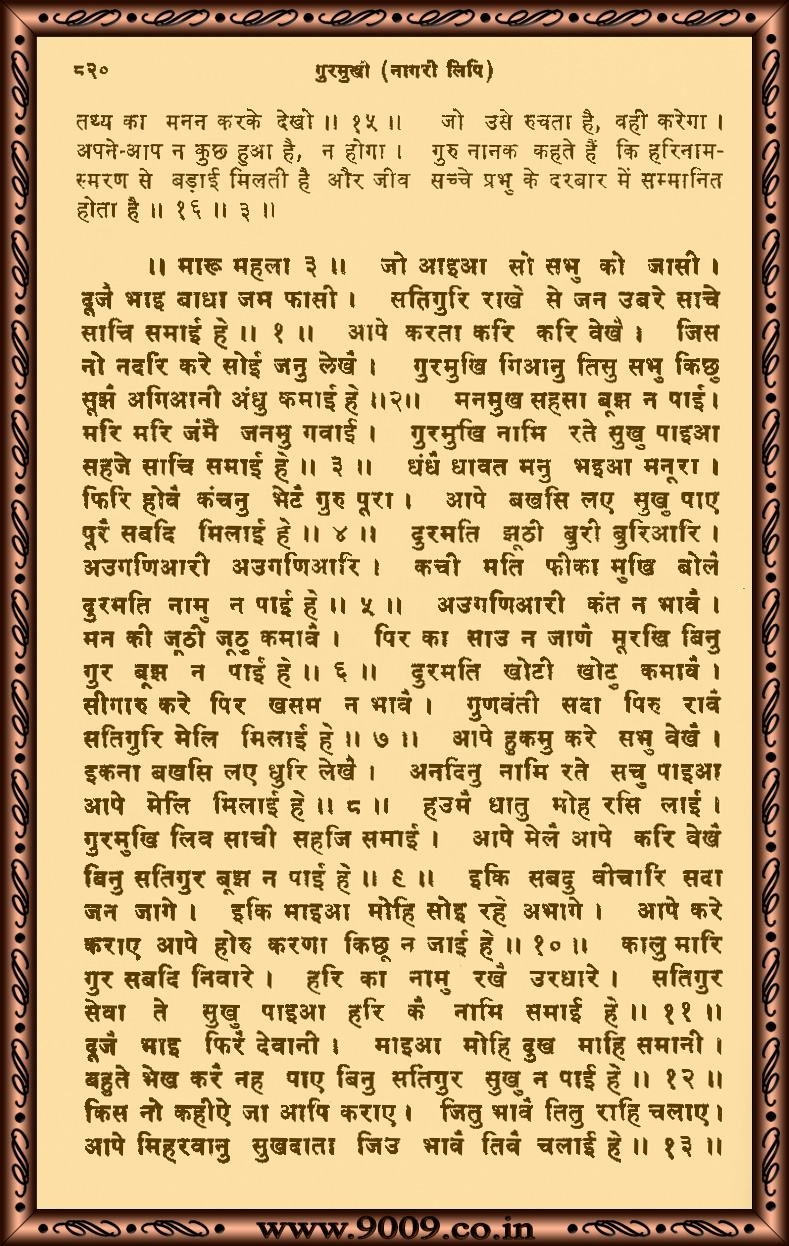 ८२०
गुरमुखी (नागरी लिपि)
तथ्य का मनन करके देखो ॥ १५ ॥ जो उसे रुचता है, वही करेगा ।
अपने-आप न कुछ हुआ है, न होगा । गुरु नानक कहते हैं कि हरिनाम-
स्मरण से बड़ाई मिलती है और जीव सच्चे प्रभु के दरबार में सम्मानित
होता है ॥ १६ ॥ ३ ॥
॥ मारू महला ३ ॥ जो आइआ सो सभु को जासी ।
दूजै भाइ बाधा जम फासी । सतिगुरि राखे से जन उबरे साचे
साचि समाई हे ॥ १ ॥ आपे करता करि करि वेखै । जिस
नो नदरि करे सोई जनु लेखै । गुरमुखि गिआनु तिसु सभु किछु
सूझै अगिआनी अंधु कमाई हे ॥२॥ मनमुख सहसा बूझ न पाई ।
मरि मरि जंमै जनमु गवाई । गुरमुखि नामि रते सुखु पाइआ
सहजे साचि समाई हे ॥ ३ ॥ धंधै धावत मनु भइआ मनूरा ।
फिरि होवै कंचनु भेटै गुरु पूरा । आपे बखसि लए सुखु पाए
पूरै सबदि मिलाई हे ॥ ४ ॥ दुरमति झूठी बुरी बुरिआरि ।
अउगणिआरी अउगणिआरि । कची मति फीका मुखि बोलै
दुरमति नामु न पाई हे ॥ ५ ॥ अउगणिआरी कंत न भावै ।
मन की जूठी जूठु कमावै । पिर का साउ न जाणै मूरखि बिनु
गुर बूझ न पाई हे ॥ ६ ॥ दुरमति खोटी खोटु कमावै ।
सीगारु करे पिर खसम न भावै । गुणवंती सदा पिरु रावै
सतिगुरि मेलि मिलाई हे ॥ ७ ॥ आपे हुकमु करे सभु वेखै ।
इकना बखसि लए धुरि लेखै । अनदिनु नामि रते सचु पाइआ
आपे मेलि मिलाई हे ॥ ८ ॥ हउमै धातु मोह रसि लाई ।
गुरमुखि लिव साची सहजि समाई । आपे मेलै आपे करि वेखै
बिनु सतिगुर बूझ न पाई हे ॥ ९ ॥ इकि सबदु वीचारि सदा
जन जागे । इकि माइआ मोहि सोइ रहे अभागे । आपे करे
कराए आपे होरु करणा किछू न जाई हे ॥ १० ॥ कालु मारि
गुर सबदि निवारे । हरि का नामु रखै उरधारे । सतिगुर
सेवा ते सुखु पाइआ हरि कै नामि समाई हे ॥ ११ ॥
दूजै भाइ फिरै देवानी । माइआ मोहि दुख माहि समानी ।
बहुते भेख करै नह पाए बिनु सतिगुर सुखु न पाई हे ॥ १२ ॥
किस नो कहीऐ जा आपि कराए । जितु भावै तितु राहि चलाए ।
आपे मिहरवानु सुखदाता जिउ भावै तिवै चलाई हे ॥ १३ ॥
www.9009.co.in